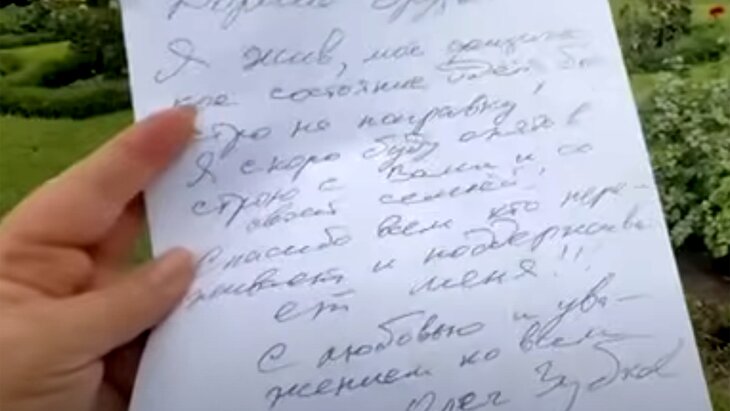 Дорогие друз
Я жив, мое физиче
ское состояние идёт бы
стро на поправку,
Я скоро буду опять в
строю с Вами и со
своей семьёй!
Спасибо всем кто пере-
живает и поддержива
ет меня!!
С любовью и ува-
жением ко всем
Олег Зубков